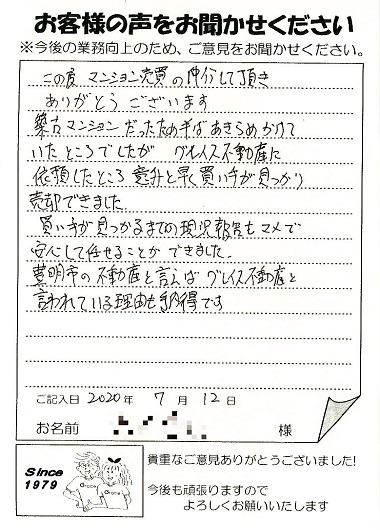 お客様の声をお聞かせください
※今後の業務向上のため、ご意見をお聞かせください。
この度 マンション売買の仲介して頂き
ありがとう ございます
築古マンションだったため半ばあきらめかけて
いたところでしたが グレイス不動産に
依頼したところ 意外と早く買い手が見つかり
売却できました.
買い手が見つかるまでの現況報告もマメで
安心して任せることが できました.
豊明市の不動産と言えば グレイス不動産と
言われている理由も納得です
ご記入日 2020 年 7 月 12 日
お名前 様
Since
1979
貴重なご意見ありがとうございました!
今後も頑張りますので
よろしくお願いいたします